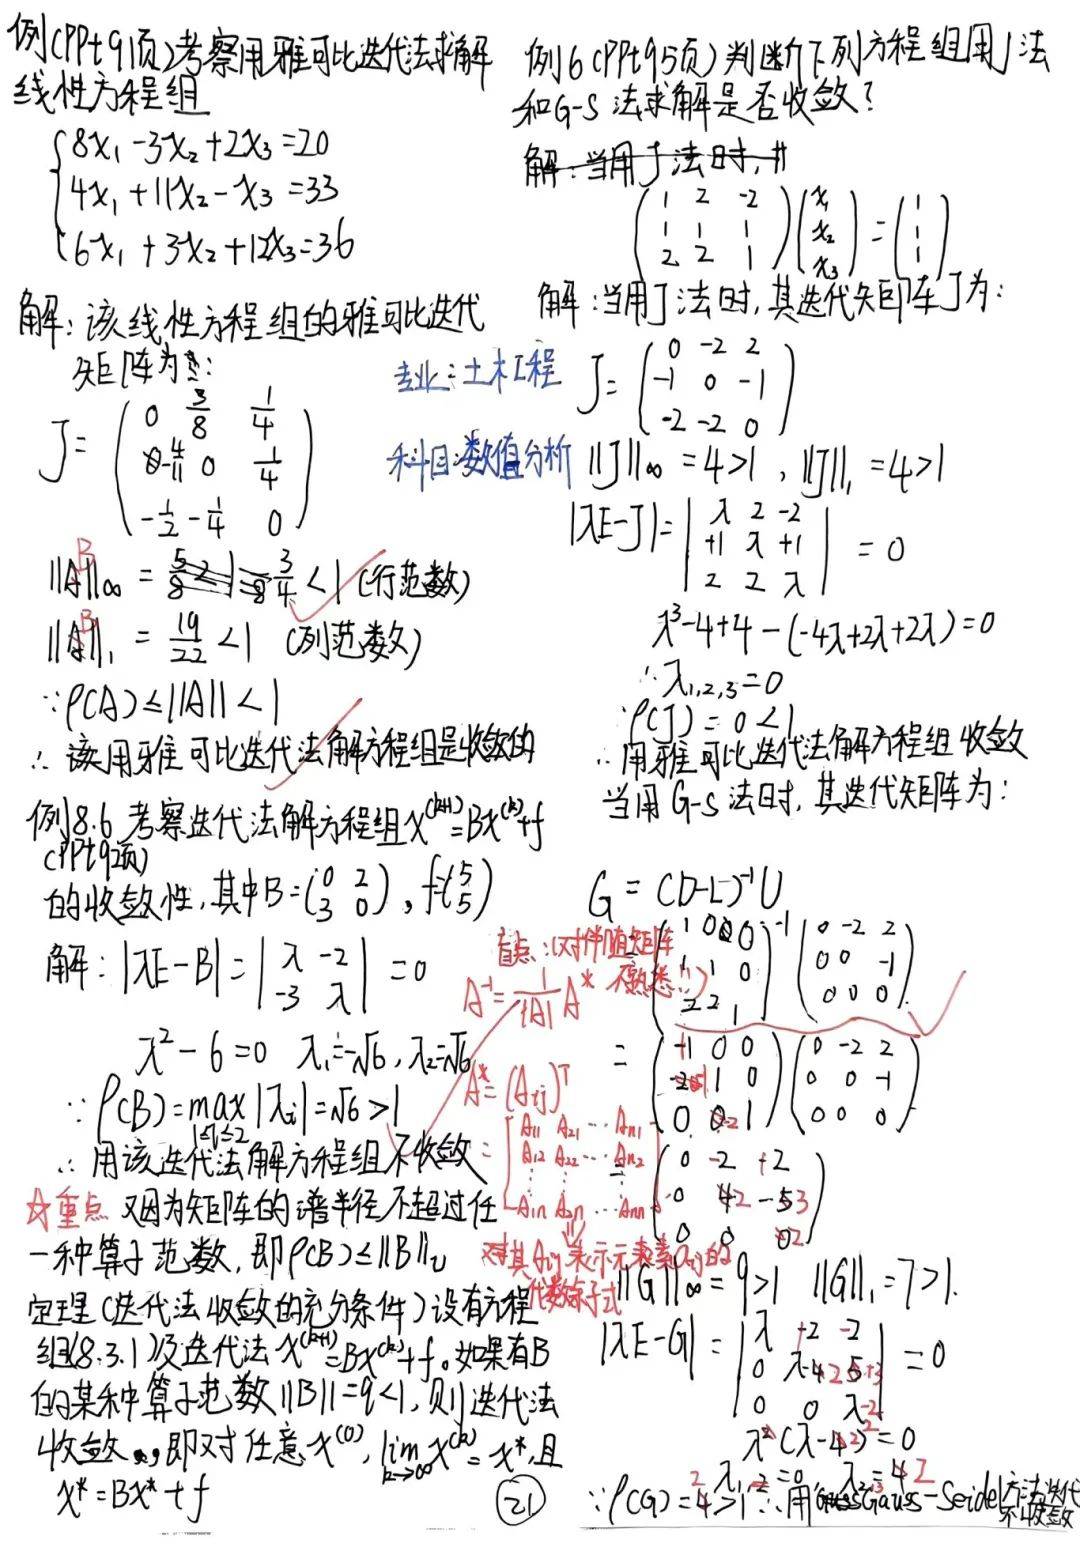 例(PPt91页)考察用雅可比迭代法求解
线性方程组
8x₁-3x₂+2x₃=20
4x₁+11x₂-x₃=33
6x₁+3x₂+12x₃=36
解:该线性方程组的雅可比迭代
矩阵为:
J= ( 0 3/8 1/4
-4/11 0 1/4
-1/2 -1/4 0 )
||B||∞ = 3/4 <1 (行范数)
||B||₁ = 19/22 <1 (列范数)
∵ρ(A)≤||A||<1
∴该用雅可比迭代法解方程组是收敛的
例8.6 考察迭代法解方程组x^(k+1)=Bx^(k)+f
(PPt92页)
的收敛性,其中B=(0 2 3 0), f=(5 5)
解:|λE-B|=|λ -2 -3 λ|=0
λ²-6=0 λ₁=-√6,λ₂=√6
∵ρ(B)=max|λi|=√6>1
1≤i≤2
∴用该迭代法解方程组不收敛
☆重点 又因为矩阵的谱半径不超过任
一种算子范数,即ρ(B)≤||B||v
定理(迭代法收敛的充分条件)设有方程
组(8.3.1)及迭代法x^(k+1)=Bx^(k)+f。如果有B
的某种算子范数||B||=q<1,则迭代法
收敛,即对任意x^(0),lim x^(k)=x*,且
k→∞
x*=Bx*+f
专业:土木工程
科目:数值分析
例6(PPt95页)判断下列方程组用J法
和G-S法求解是否收敛?
解:当用J法时,
( 1 2 -2
1 1 1
2 2 1 ) ( x₁ x₂ x₃ ) = ( 1 1 1 )
解:当用J法时,其迭代矩阵J为:
J= ( 0 -2 2
-1 0 -1
-2 -2 0 )
||J||∞=4>1,||J||₁=4>1
|λE-J|= | λ 2 -2
+1 λ +1
2 2 λ | =0
λ³-4+4-(-4λ+2λ+2λ)=0
∴λ₁,₂,₃=0
∴ρ(J)=0<1
∴用雅可比迭代法解方程组收敛
当用G-S法时,其迭代矩阵为:
G=(D-L)⁻¹U
= ( 1 0 0
1 1 0
2 2 1 )⁻¹ ( 0 -2 2
0 0 -1
0 0 0 )
盲点:(对伴随矩阵
不熟悉!)
A⁻¹=1/|A| A*
A*=(Aij)ᵀ
= [ A₁₁ A₂₁ … An₁
A₁₂ A₂₂ … An₂
⋮ ⋮ ⋮
A₁n A₂n … Ann ]
对其Aij表示元素aij的
代数余子式
= ( 1 0 0
-1 1 0
0 -2 1 ) ( 0 -2 2
0 0 -1
0 0 0 )
= ( 0 -2 +2
0 2 -3
0 0 2 )
||G||∞=9>1 ||G||₁=7>1.
|λE-G|= | λ +2 -2
0 λ-2 +3
0 0 λ-2 | =0
λ(λ-2)²=0
λ₁=0 λ₂,₃=2
∵ρ(G)=2>1∴用Gauss-Seidel方法迭代
不收敛
21